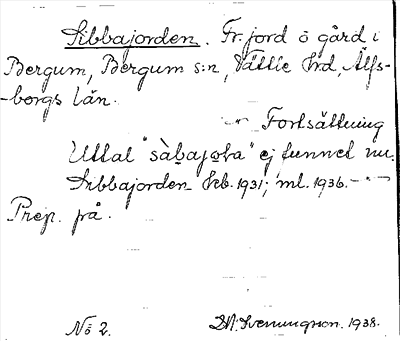 Sibbajorden. Fr. jord o gård i
Bergum, Bergum s:n, Vättle hrd, Älfs-
-borgs län.
Fortsättning
Uttal "sàbajoŗa" ej funnet nu.
Sibbajorden kb. 1931; ml. 1936.
Prep. på.
No 2. D.N. Svenungson. 1938.